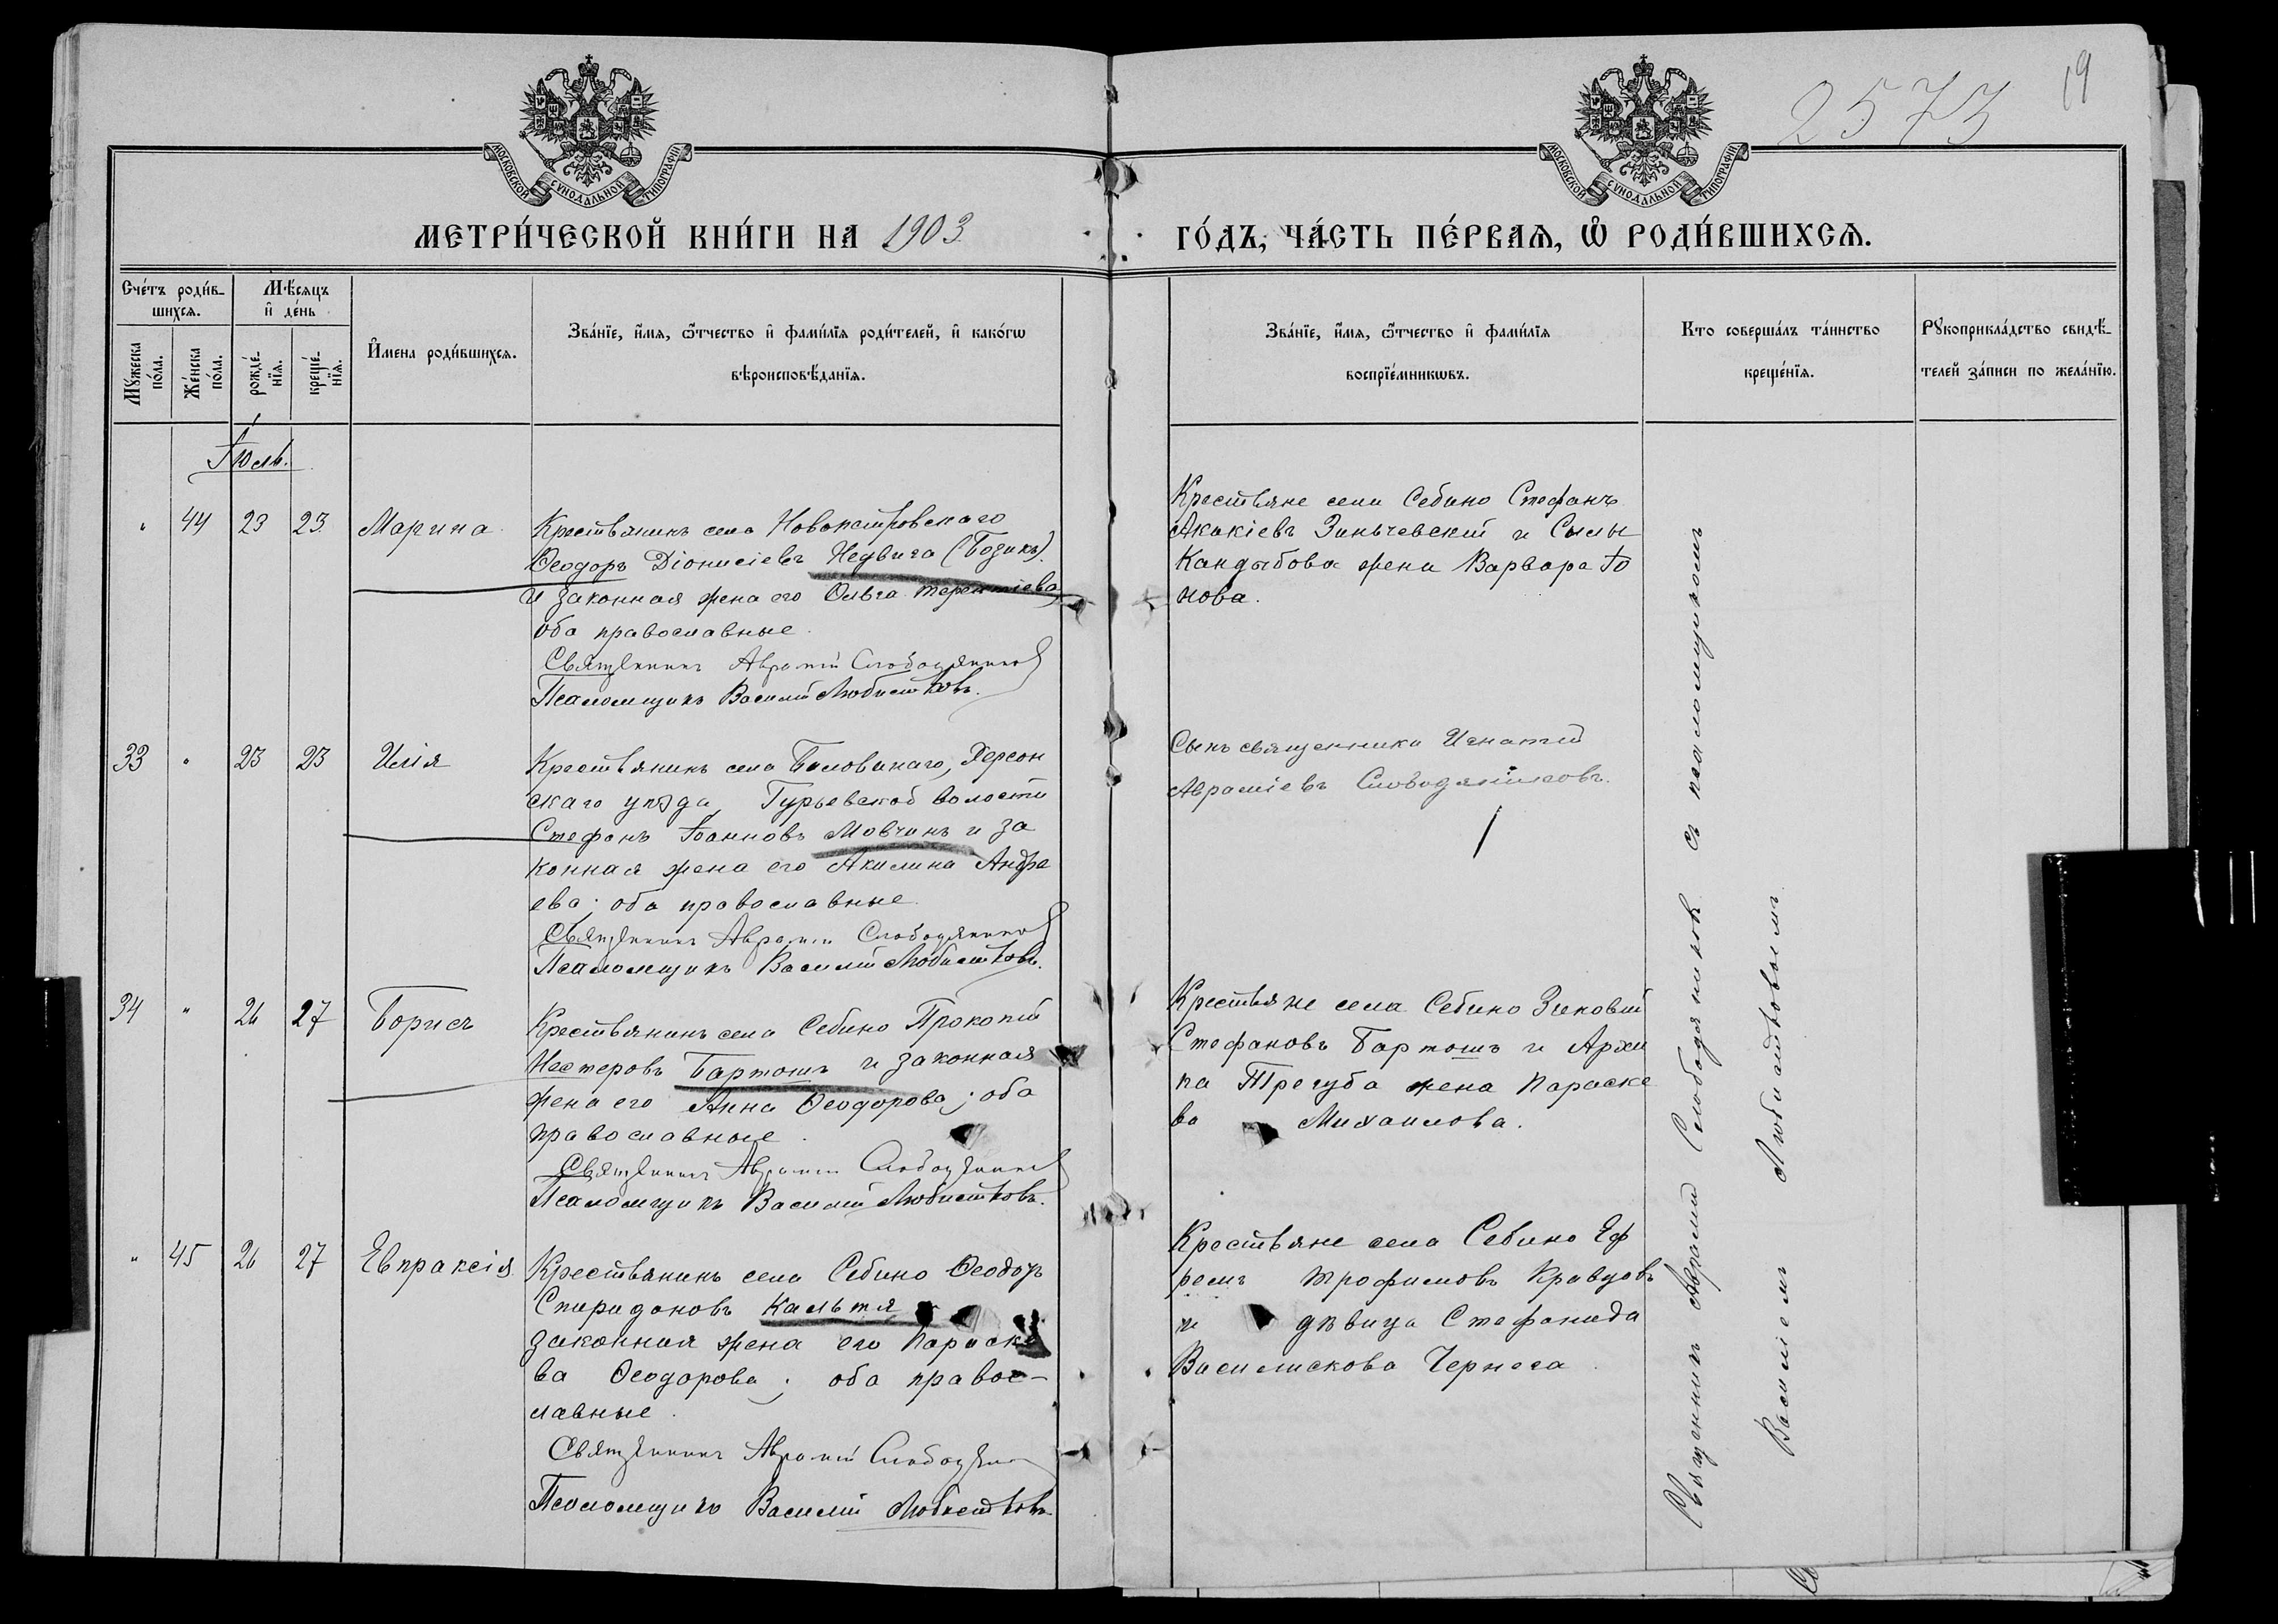 2573
19
МОСКОВСКОЙ СѴНОДАЛЬНОЙ ТИПОГРАФІИ
МОСКОВСКОЙ СѴНОДАЛЬНОЙ ТИПОГРАФІИ
МЕТРИ́ЧЕСКОЙ КНИ́ГИ НА 1903
ГО́ДЪ, ЧА́СТЬ ПЕ́РВАѦ, Ѡ҆ РОДИ́ВШИХСѦ.
Сче́тъ роди́в-
шихсѧ.
Мѣсѧцъ
и҆ де́нь
Мꙋжеска
по́ла.
Же́нска
по́ла.
рожде́-
нїѧ.
креще́-
нїѧ.
И҆мена роди́вшихсѧ.
Зва́нїе, и҆́мѧ, ѻ҆́тчество и҆ фами́лїѧ роди́телей, и҆ како́гѡ
вѣроисповѣ́данїѧ.
Зва́нїе, и҆́мѧ, ѻ҆́тчество и҆ фами́лїѧ
воспрїе́мникѡвъ.
Кто соверша́лъ та́инство
креще́нїѧ.
Рꙋкоприкла́дство свидѣ́-
телей за́писи по жела́нїю.
Іюль.
" 44 23 23 Марина
Крестьянинъ села Новопетровскаго
Ѳеодоръ Діонисіевъ Недвига (Бозикъ)
и законная жена его Ольга Терентіева
оба православные.
Священникъ Аврамій Слободяников
Псаломщикъ Василій Любистковъ.
Крестьяне села Себино Стефанъ
Акакіевъ Зиньчевскій и Сылы
Кандыбова жена Варвара Іо
нова.
33 " 23 23 Илія
Крестьянинъ села Баловнаго, Херсон
скаго уѣзда, Гурьевской волости
Стефанъ Іоанновъ Мовчинъ и за
конная жена его Акилина Андре
ева; оба православные.
Священникъ Аврамій Слободяников
Псаломщикъ Василій Любистковъ.
Сынъ священника Игнатій
Авраміевъ Слободяниковъ.
34 " 26 27 Борисъ
Крестьянинъ села Себино Прокопій
Нестеровъ Бартошъ и законная
жена его Анна Ѳеодорова; оба
православные.
Священникъ Аврамій Слободяников
Псаломщикъ Василій Любистковъ.
Крестьяне села Себино Зиновій
Стефановъ Бартошъ и Архи
па Трегуба жена Параске
ва Михаилова.
" 45 26 27 Евпраксія
Крестьянинъ села Себино Ѳеодоръ
Спиридоновъ Кальтя
законная жена его Параске
ва Ѳеодорова; оба правос-
лавные.
Священникъ Аврамій Слободян
Псаломщикъ Василій Любистковъ
Крестьяне села Себино Еф
ремъ Трофимовъ Кравцовъ
и дѣвица Стефанида
Василискова Чернега.
Священникъ Аврамій Слободяниковъ съ псаломщикомъ
Василіемъ Любистковымъ